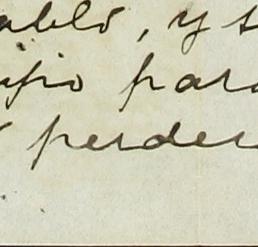 ablo, y s
ipio para
perder